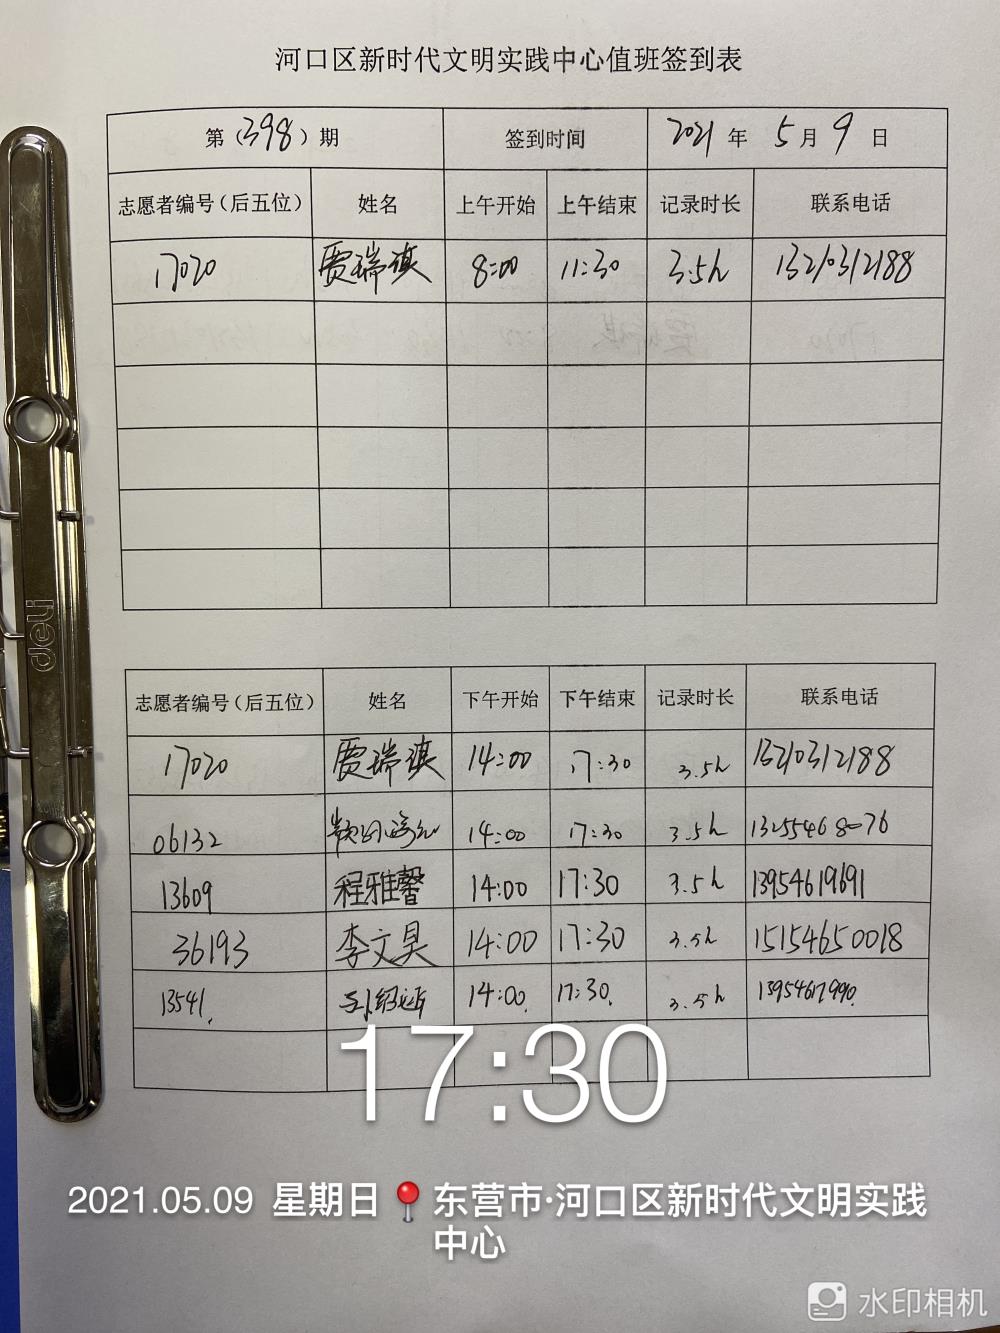 河口区新时代文明实践中心值班签到表
第(398)期 签到时间 2021年 5月9日
志愿者编号(后五位) 姓名 上午开始 上午结束 记录时长 联系电话
17020 贾瑞淇 8:00 11:30 3.5h 13210312188
志愿者编号(后五位) 姓名 下午开始 下午结束 记录时长 联系电话
17020 贾瑞淇 14:00 17:30 3.5h 13210312188
06132 14:00 17:30 3.5h
13609 程雅馨 14:00 17:30 3.5h 13954619691
36193 李文昊 14:00 17:30 3.5h 15154650018
13541. 14:00. 17:30. 3.5h
17:30
2021.05.09 星期日 东营市·河口区新时代文明实践
中心
deli
水印相机